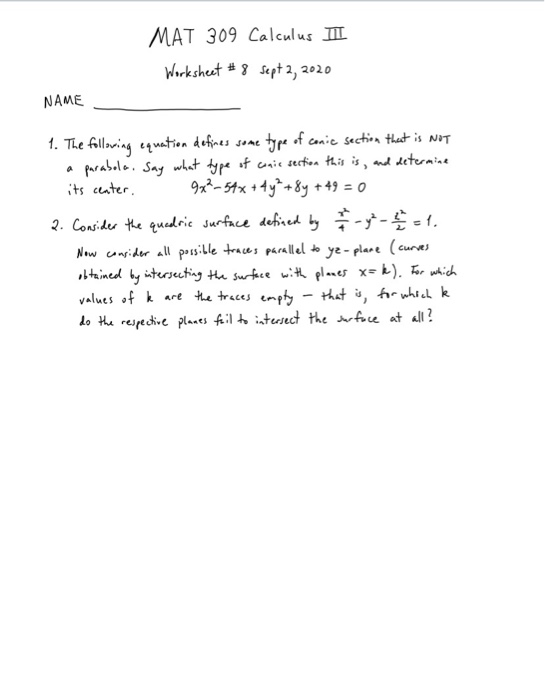 MAT 309 Calculus III
Worksheet # 8 Sept 2, 2020
NAME
1. The following equation defines some type of conic section that is NOT
a parabola. Say what type of conic section this is, and determine
its center. 9x² - 54x + 4y² + 8y + 49 = 0
2. Consider the quadric surface defined by x²/4 - y² - z²/2 = 1.
Now consider all possible traces parallel to yz-plane (curves
obtained by intersecting the surface with planes x = k). For which
values of k are the traces empty – that is, for which k
do the respective planes fail to intersect the surface at all?